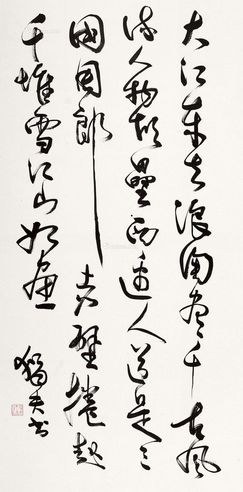 大江東去浪淘盡千古風
流人物故壘西邊人道是三
國周郎赤壁捲起
千堆雪江山如畫
夫書